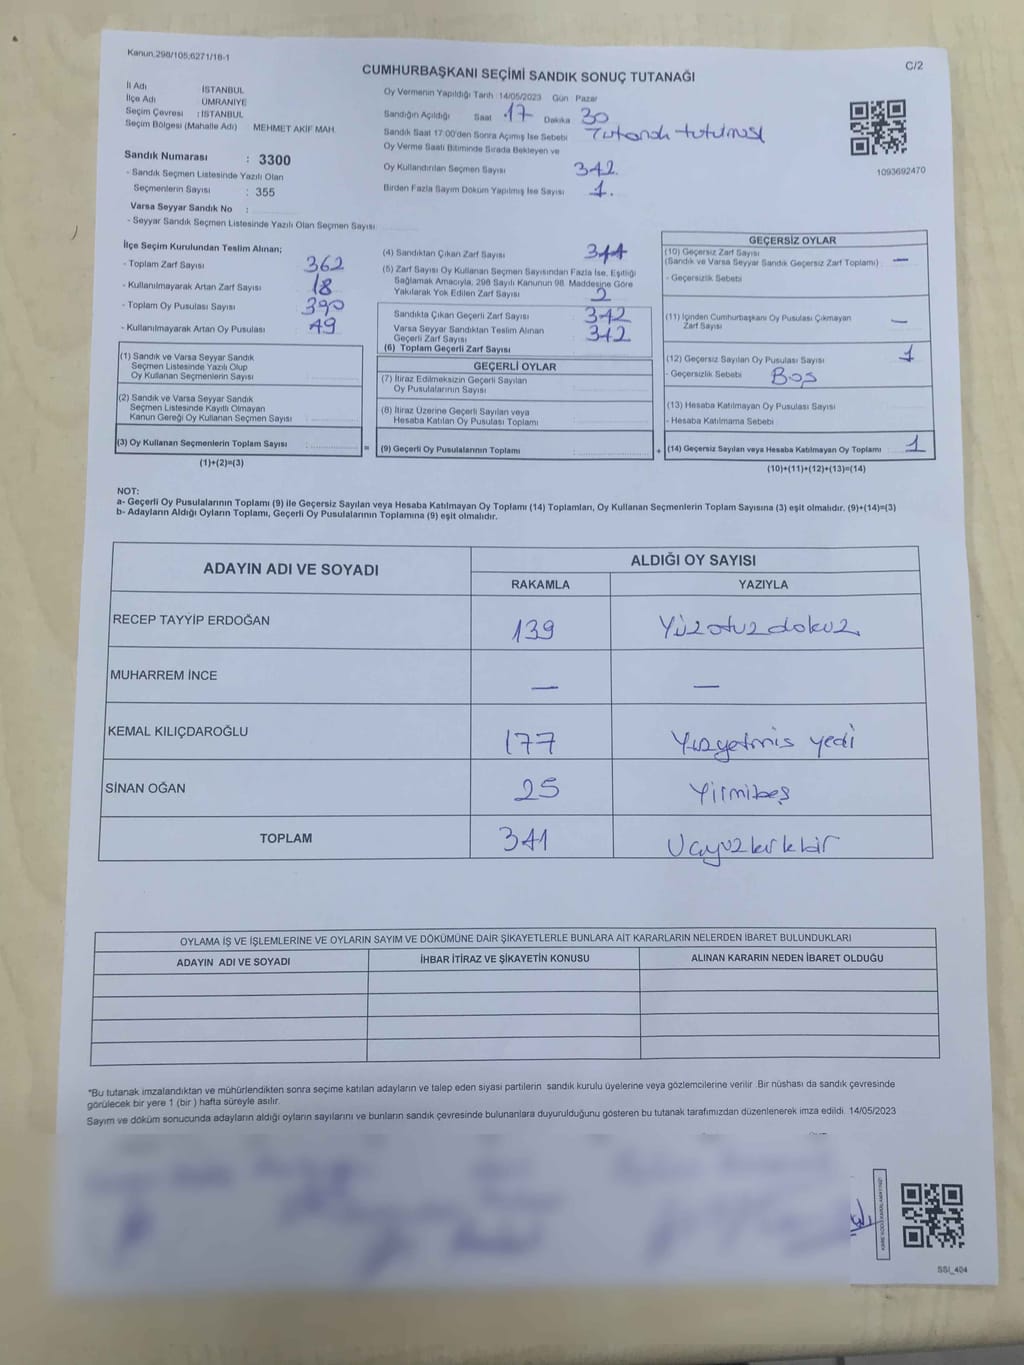 Kanun.298/105,6271/18-1
C/2
CUMHURBAŞKANI SEÇİMİ SANDIK SONUÇ TUTANAĞI
İl Adı İSTANBUL
İlçe Adı ÜMRANİYE
Seçim Çevresi : İSTANBUL
Seçim Bölgesi (Mahalle Adı) MEHMET AKİF MAH.
Sandık Numarası : 3300
- Sandık Seçmen Listesinde Yazılı Olan
Seçmenlerin Sayısı : 355
Varsa Seyyar Sandık No :
- Seyyar Sandık Seçmen Listesinde Yazılı Olan Seçmen Sayısı
Oy Vermenin Yapıldığı Tarih :14/05/2023 Gün Pazar
Sandığın Açıldığı Saat 17 Dakika 30
Sandık Saat 17:00'den Sonra Açımış İse Sebebi Tutanak tutulması
Oy Verme Saati Bitiminde Sırada Bekleyen ve
Oy Kullandırılan Seçmen Sayısı 342
Birden Fazla Sayım Döküm Yapılmış İse Sayısı 1.
1093692470
İlçe Seçim Kurulundan Teslim Alınan;
- Toplam Zarf Sayısı 362
- Kullanılmayarak Artan Zarf Sayısı 18
- Toplam Oy Pusulası Sayısı 390
- Kullanılmayarak Artan Oy Pusulası : 49
(1) Sandık ve Varsa Seyyar Sandık
Seçmen Listesinde Yazılı Olup
Oy Kullanan Seçmenlerin Sayısı
(2) Sandık ve Varsa Seyyar Sandık
Seçmen Listesinde Kayıtlı Olmayan
Kanun Gereği Oy Kullanan Seçmen Sayısı
(3) Oy Kullanan Seçmenlerin Toplam Sayısı =
(1)+(2)=(3)
(4) Sandıktan Çıkan Zarf Sayısı 344
(5) Zarf Sayısı Oy Kullanan Seçmen Sayısından Fazla İse, Eşitliği
Sağlamak Amacıyla, 298 Sayılı Kanunun 98. Maddesine Göre
Yakılarak Yok Edilen Zarf Sayısı 2
Sandıkta Çıkan Geçerli Zarf Sayısı : 342
Varsa Seyyar Sandıktan Teslim Alınan
Geçerli Zarf Sayısı : 342
(6) Toplam Geçerli Zarf Sayısı
GEÇERLİ OYLAR
(7) İtiraz Edilmeksizin Geçerli Sayılan
Oy Pusulalarının Sayısı
(8) İtiraz Üzerine Geçerli Sayılan veya
Hesaba Katılan Oy Pusulası Toplamı
(9) Geçerli Oy Pusulalarının Toplamı +
GEÇERSİZ OYLAR
(10) Geçersiz Zarf Sayısı
(Sandık ve Varsa Seyyar Sandık Geçersiz Zarf Toplamı) —
- Geçersizlik Sebebi
(11) İçinden Cumhurbaşkanı Oy Pusulası Çıkmayan
Zarf Sayısı —
(12) Geçersiz Sayılan Oy Pusulası Sayısı 1
- Geçersizlik Sebebi Boş
(13) Hesaba Katılmayan Oy Pusulası Sayısı
- Hesaba Katılmama Sebebi
(14) Geçersiz Sayılan veya Hesaba Katılmayan Oy Toplamı 1
(10)+(11)+(12)+(13)=(14)
NOT:
a- Geçerli Oy Pusulalarının Toplamı (9) ile Geçersiz Sayılan veya Hesaba Katılmayan Oy Toplamı (14) Toplamları, Oy Kullanan Seçmenlerin Toplam Sayısına (3) eşit olmalıdır. (9)+(14)=(3)
b- Adayların Aldığı Oyların Toplamı, Geçerli Oy Pusulalarının Toplamına (9) eşit olmalıdır.
ADAYIN ADI VE SOYADI
ALDIĞI OY SAYISI
RAKAMLA YAZIYLA
RECEP TAYYİP ERDOĞAN 139 Yüzotuzdokuz
MUHARREM İNCE — —
KEMAL KILIÇDAROĞLU 177 Yuzyetmis yedi
SİNAN OĞAN 25 Yirmibeş
TOPLAM 341 Ucyuzkırkbir
OYLAMA İŞ VE İŞLEMLERİNE VE OYLARIN SAYIM VE DÖKÜMÜNE DAİR ŞİKAYETLERLE BUNLARA AİT KARARLARIN NELERDEN İBARET BULUNDUKLARI
ADAYIN ADI VE SOYADI İHBAR İTİRAZ VE ŞİKAYETİN KONUSU ALINAN KARARIN NEDEN İBARET OLDUĞU
"Bu tutanak imzalandıktan ve mühürlendikten sonra seçime katılan adayların ve talep eden siyasi partilerin sandık kurulu üyelerine veya gözlemcilerine verilir. Bir nüshası da sandık çevresinde
görülecek bir yere 1 (bir ) hafta süreyle asılır.
Sayım ve döküm sonucunda adayların aldığı oyların sayılarını ve bunların sandık çevresinde bulunanlara duyurulduğunu gösteren bu tutanak tarafımızdan düzenlenerek imza edildi. 14/05/2023
SSI_404